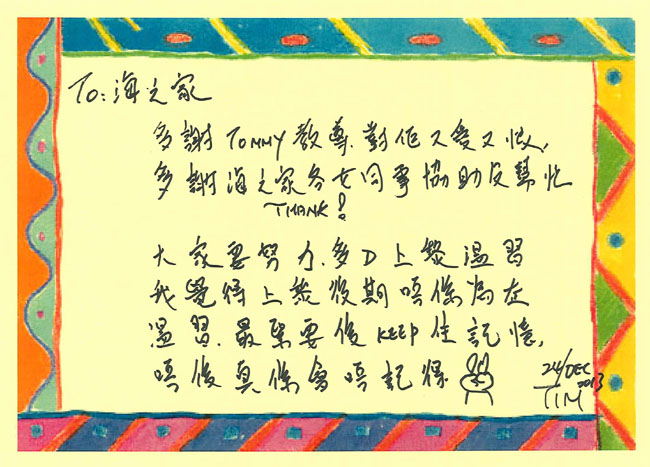 To: 海之家
多謝 TOMMY 教導. 對佢又愛又恨,
多謝海之家各女同事協助及幫忙
THANK!
大家要努力.多D上黎溫習
我覺得上黎 期唔係為左
溫習.最緊要係KEEP住記憶,
唔係真係會唔記得
24/DEC
2013
TIM